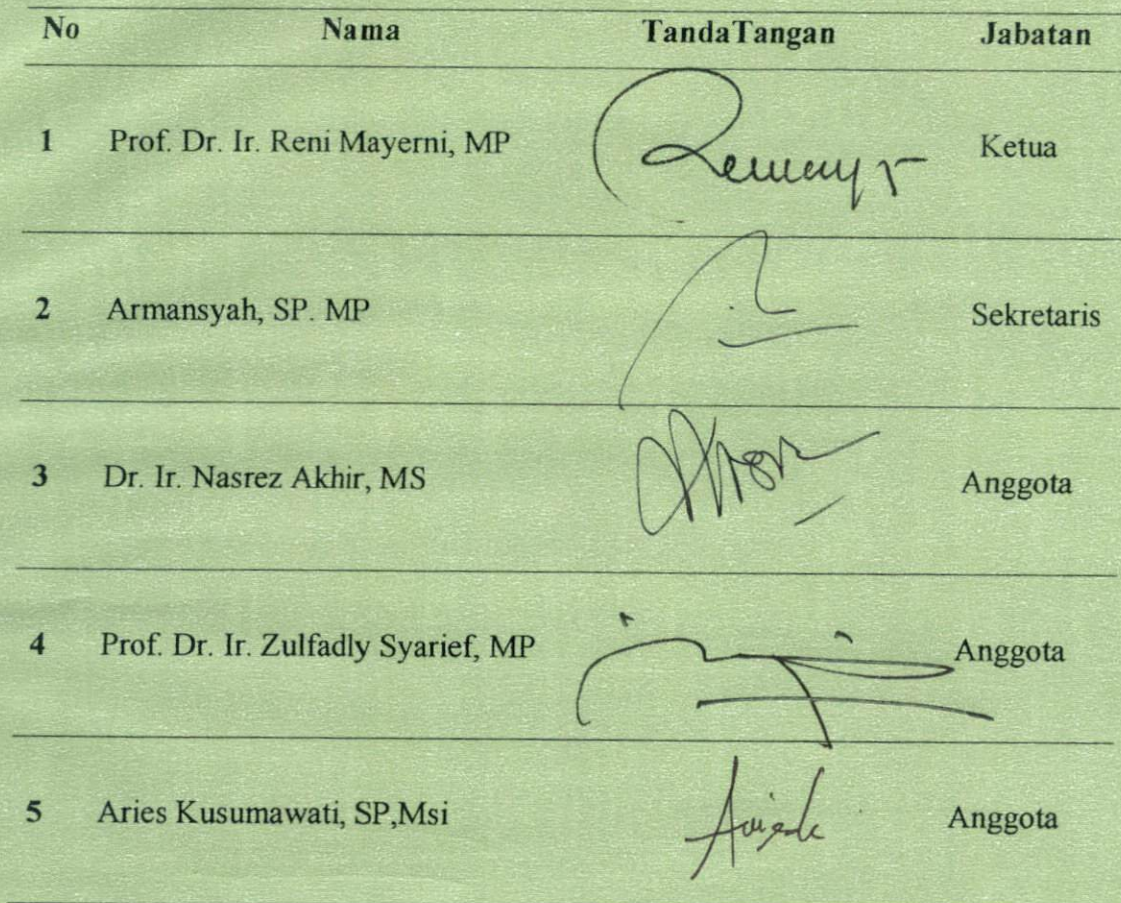 No Nama TandaTangan Jabatan
1 Prof. Dr. Ir. Reni Mayerni, MP Ketua
2 Armansyah, SP. MP Sekretaris
3 Dr. Ir. Nasrez Akhir, MS Anggota
4 Prof. Dr. Ir. Zulfadly Syarief, MP Anggota
5 Aries Kusumawati, SP,Msi Anggota